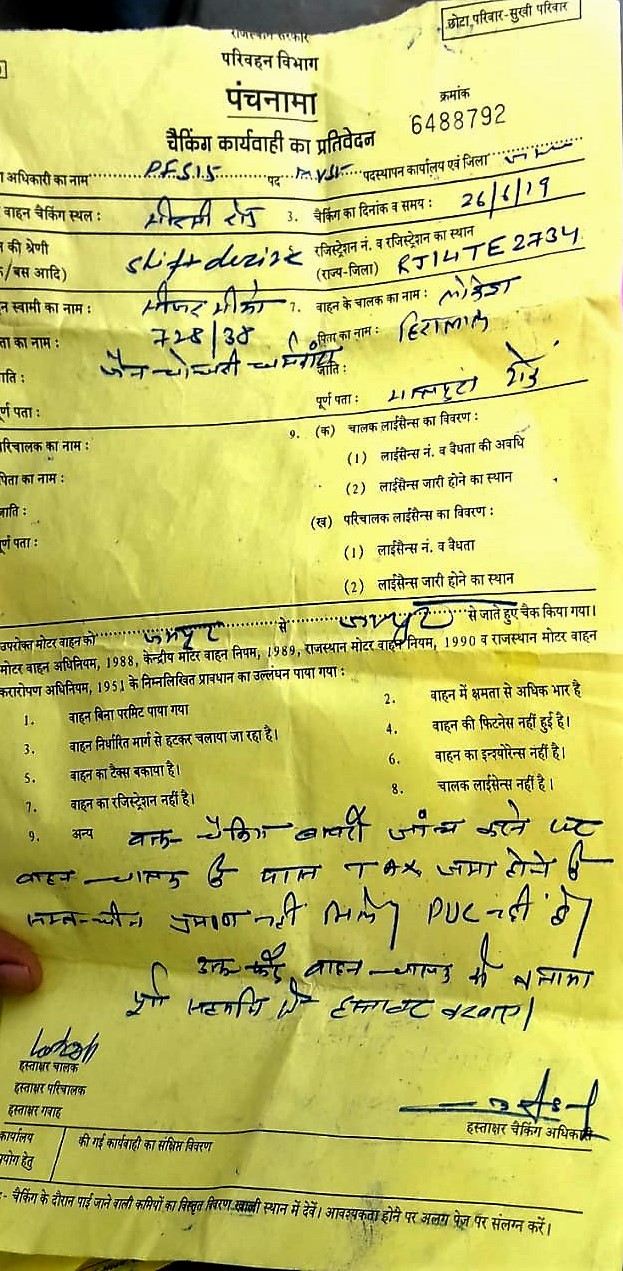 छोटा परिवार-सुखी परिवार
राजस्थान सरकार
परिवहन विभाग
पंचनामा
क्रमांक
6488792
चैकिंग कार्यवाही का प्रतिवेदन
अधिकारी का नाम P.F.S.I.5 पद MVSI पदस्थापन कार्यालय एवं जिला
वाहन चैकिंग स्थल : रोड 3. चैकिंग का दिनांक व समय : 26/6/19
की श्रेणी shift dezire रजिस्ट्रेशन नं. व रजिस्ट्रेशन का स्थान
/बस आदि) (राज्य-जिला) RJ14TE2734
न स्वामी का नाम : 7. वाहन के चालक का नाम : लोकेश
ता का नाम : 728/38 पिता का नाम : हिरालाल
जैन
ाति : जाति :
र्ण पता : पूर्ण पता : रोड
रिचालक का नाम : 9. (क) चालक लाईसैन्स का विवरण :
पिता का नाम : (1) लाईसैन्स नं. व वैधता की अवधि
(2) लाईसैन्स जारी होने का स्थान
जाति : (ख) परिचालक लाईसैन्स का विवरण :
र्ण पता : (1) लाईसैन्स नं. व वैधता
(2) लाईसैन्स जारी होने का स्थान
उपरोक्त मोटर वाहन को जयपुर से जयपुर से जाते हुए चैक किया गया।
मोटर वाहन अधिनियम, 1988, केन्द्रीय मोटर वाहन नियम, 1989, राजस्थान मोटर वाहन नियम, 1990 व राजस्थान मोटर वाहन
करारोपण अधिनियम, 1951 के निम्नलिखित प्रावधान का उल्लंघन पाया गया :
1. वाहन बिना परमिट पाया गया 2. वाहन में क्षमता से अधिक भार है
3. वाहन निर्धारित मार्ग से हटकर चलाया जा रहा है। 4. वाहन की फिटनेस नहीं हुई है।
5. वाहन का टैक्स बकाया है। 6. वाहन का इन्श्योरेन्स नहीं है।
7. वाहन का रजिस्ट्रेशन नहीं है। 8. चालक लाईसेन्स नहीं है।
9. अन्य वक्त चैकिंग जांच करने पर
वाहन चालक के पास TAX जमा होने के
प्रमाण नही मिले। PUC नही है।
वाहन चालक को
हस्ताक्षर करवाए।
Lokesh
हस्ताक्षर चालक
हस्ताक्षर परिचालक
हस्ताक्षर गवाह
हस्ताक्षर चैकिंग अधिकारी
कार्यालय की गई कार्यवाही का संक्षिप्त विवरण
योग हेतु
:- चैकिंग के दौरान पाई जाने वाली कमियों का विस्तृत विवरण खाली स्थान में देवें। आवश्यकता होने पर अलग पेज पर संलग्न करें।